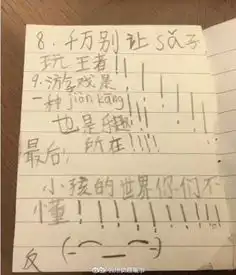 8.千万别让sǎ子
玩王者!!!!!!!!
9.游戏是
一种jiàn kāng!!!!!!
也是乐趣!!!
最后; 所在!!!!
小孩的世界你们不
懂!!!!!!!!!!!
反 (-⌒_⌒-)